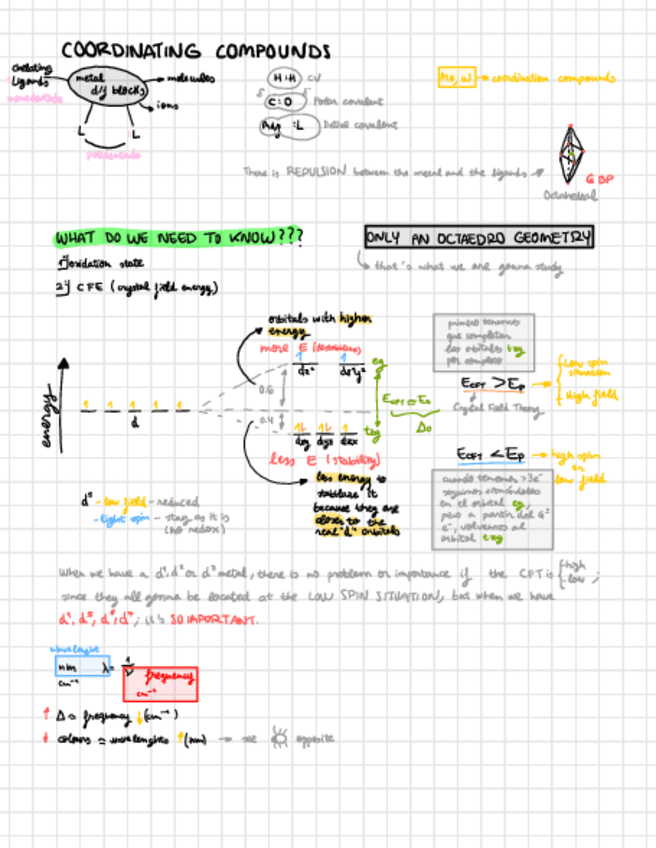 COORDINATING COMPOUNDS
chelating
Ligands
metal
d/f blocks
molecules
ions
monodentado
L L
polidentado
H:H CV
C:O Polar covalent
:L Dative covalent
coordination compounds
There is REPULSION between the metal and the ligands
6 BP
Octahedral
WHAT DO WE NEED TO KNOW???
ONLY AN OCTAEDRO GEOMETRY
that's what we are gonna study
1) oxidation state
2) CFE (crystal field energy)
orbitals with higher
energy
more E (destabilize)
dz² dx²y²
eg
0.6
0.4
energy
d
dxy dyz dzx
t2g
less E (stability)
Δo
less energy to
stabilize it
because they are
closer to the
real "d" orbitals
primero tenemos
que completar
los orbitales t2g
por completo
ECFT > EP
Crystal Field Theory
Low spin
situation
High field
ECFT < EP
high spin
or
low field
cuando tenemos >3e⁻
seguimos
en el orbital eg,
pero a partir del 6º
e⁻, volvemos al
orbital t2g
d⁵ - low field - reduced
- stay as it is
(no redox)
When we have a d¹, d² or d³ metal, there is no problem or importance if the CFT is high
low ;
since they all gonna be located at the LOW SPIN SITUATION, but when we have
d⁴, d⁵, d⁶, d⁷; it's SO IMPORTANT.
wavelenght
nm
cm⁻¹
λ= 1/ν
frequency
cm⁻¹
↑ Δo frequency ↓ (cm⁻¹)
↓ colours = wavelenghts ↑ (nm) → see opposite